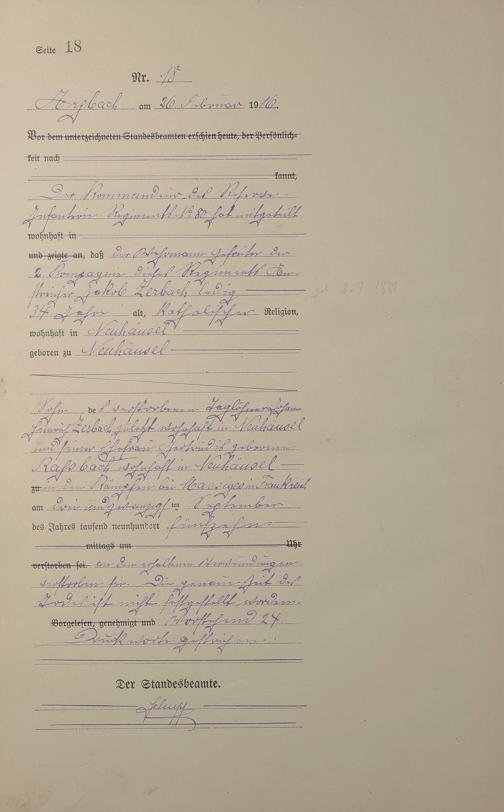 Seite 18
Nr. 18
Arzbach am 26 Februar 1916.
Vor dem unterzeichneten Standesbeamten erschien heute, der Persönlich-
keit nach
kannt,
Der Kommandeur des Reserve-
Infanterie Regiments No 80 hat mitgeteilt
wohnhaft in
und zeigte an, daß der Wehrmann Gefreiter der
2. Kompagnie dieses Regiments An-
streicher Jakob Zerbach ledig,
34 Jahre alt, katholischer Religion,
wohnhaft in Neuhäusel
geboren zu Neuhäusel
Sohn des verstorbenen Taglöhner Johann
Heinrich Zerbach zuletzt wohnhaft in Neuhäusel
und seiner Ehefrau Gertrudis geborene
wohnhaft in Neuhäusel
zu in den Kämpfen bei Massiges in Frankreich
am drei und zwanzigsten September
des Jahres tausend neunhundert fünfzehn
mittags um Uhr
verstorben sei. an den erhaltenen Verwundungen
verstorben sei. Die genaue Zeit des
Todes ist nicht festgestellt worden.
Vorgelesen, genehmigt und Vorstehend 24
Druckworte gestrichen.
Der Standesbeamte.